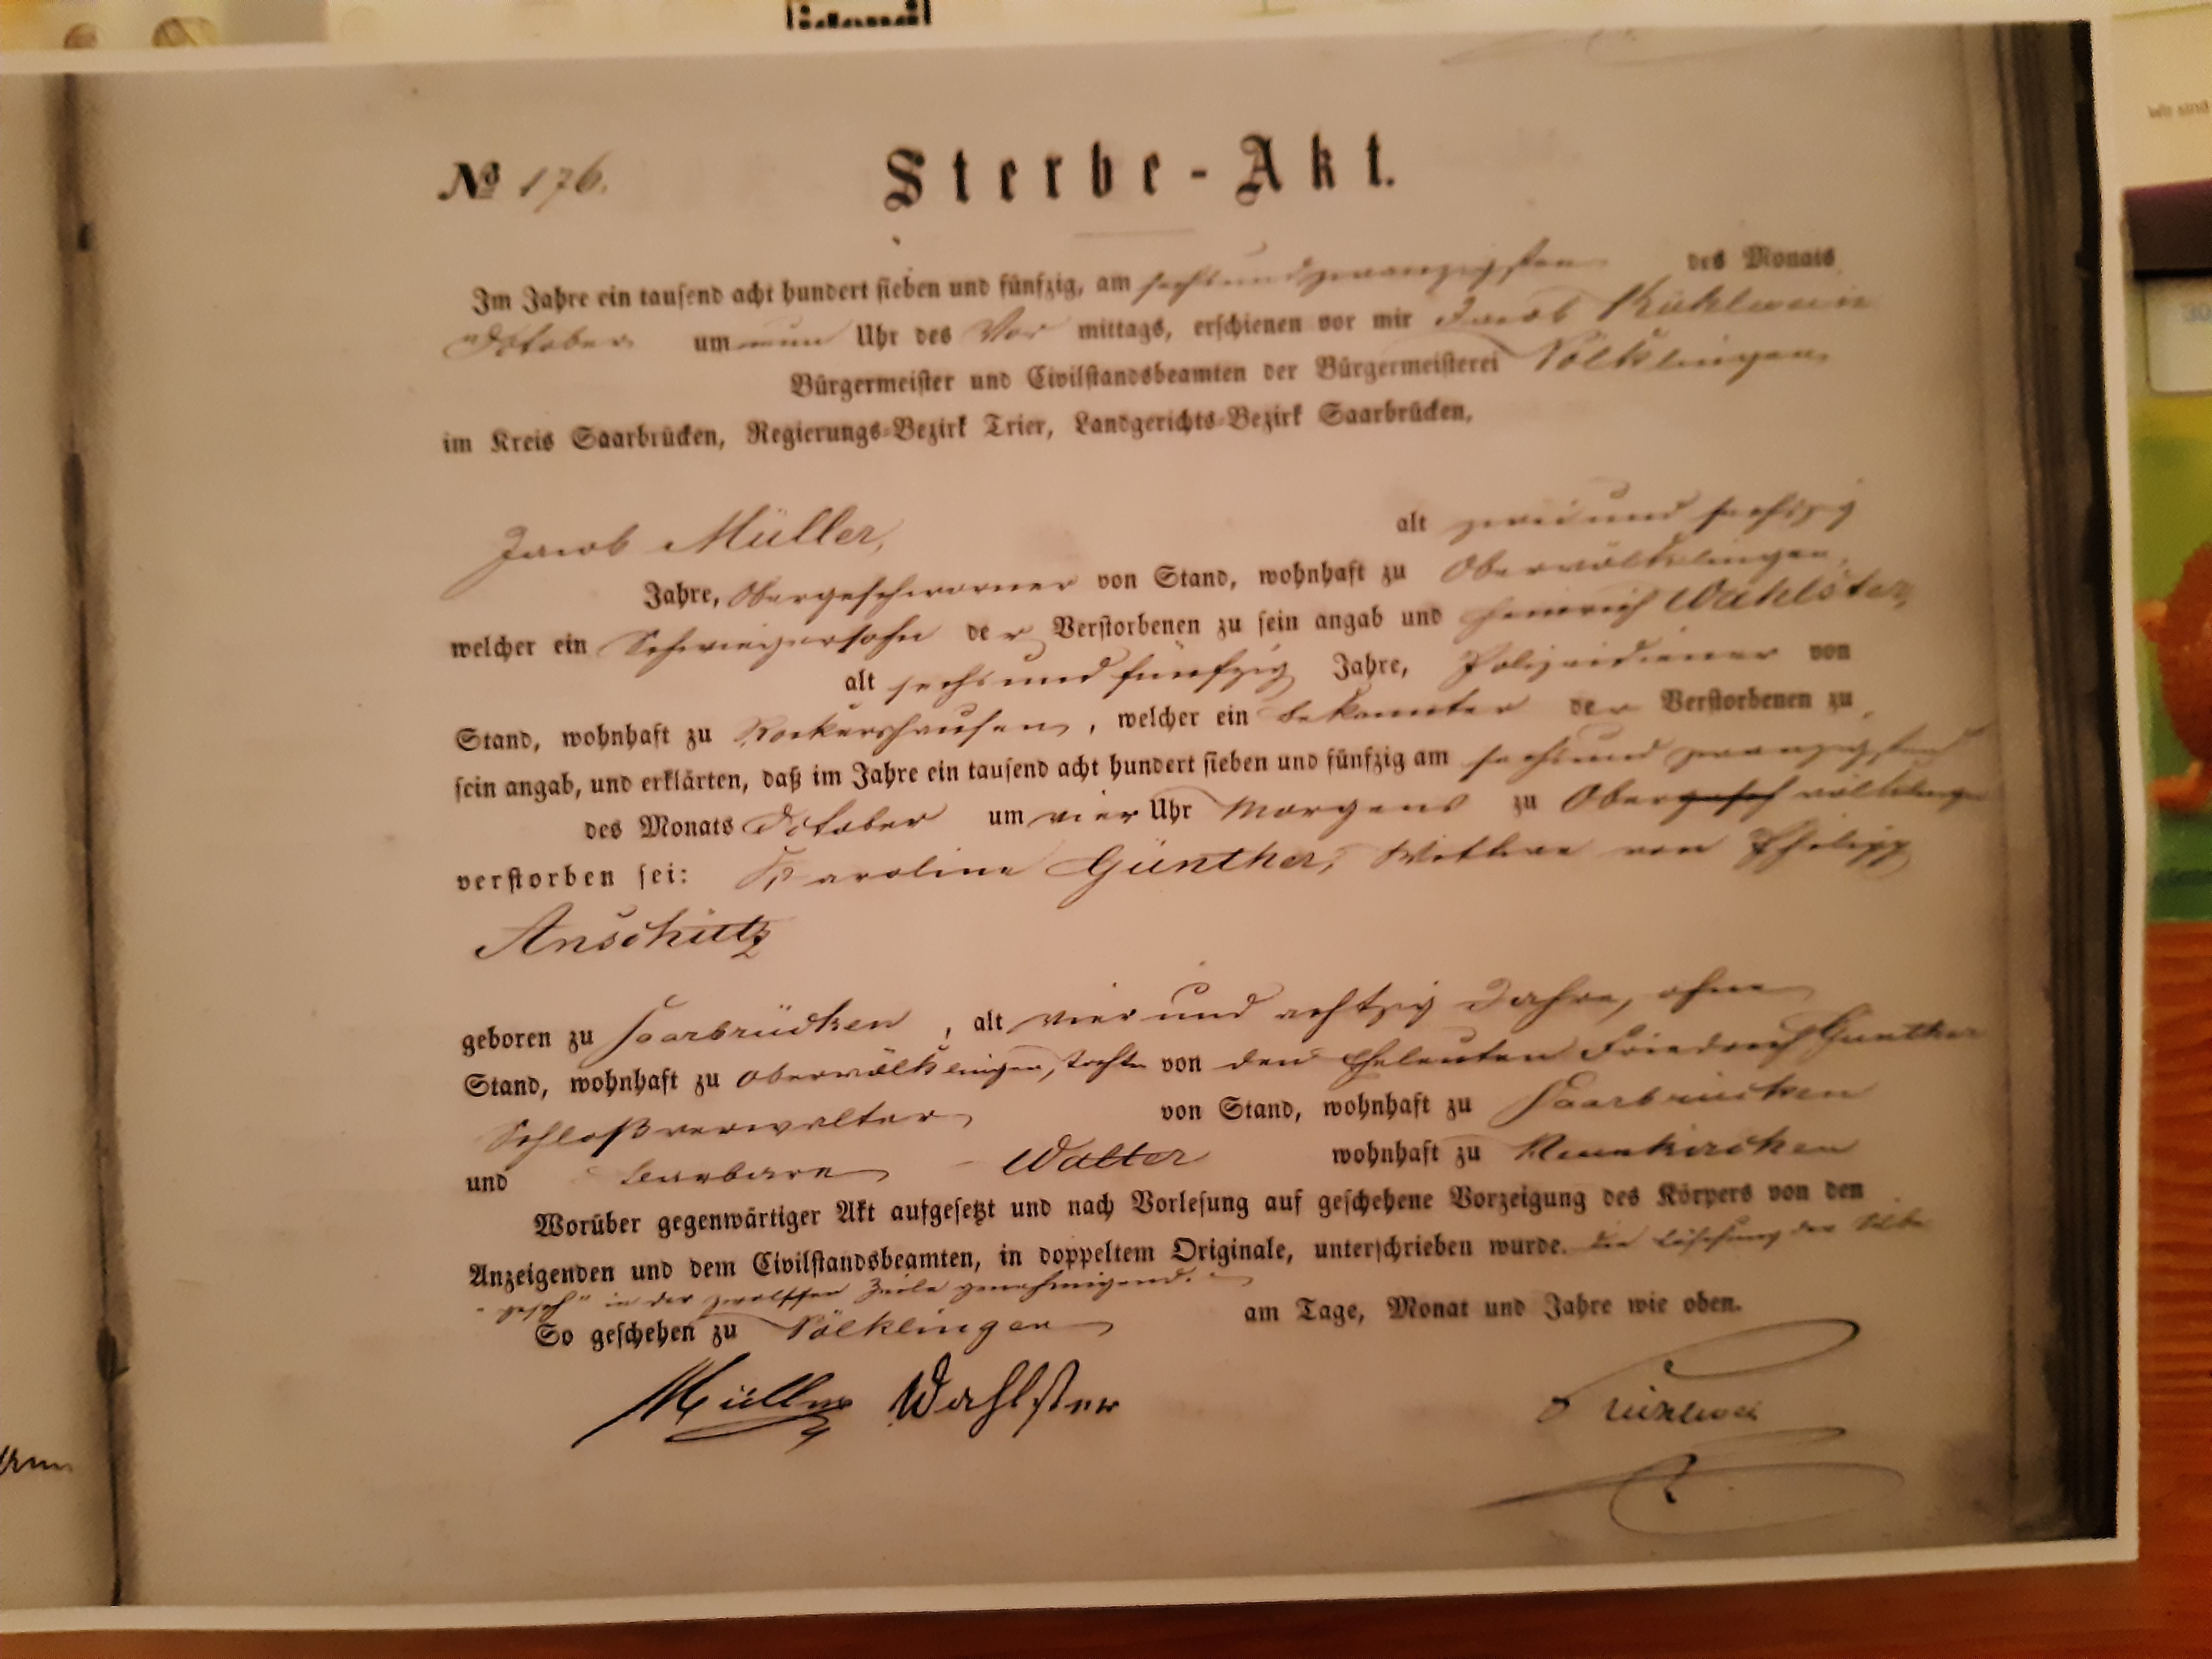 № 176.
Sterbe-Akt.
Im Jahre ein tausend acht hundert sieben und fünfzig, am sechsundzwanzigsten des Monats
October um neun Uhr des Vor mittags, erschienen vor mir Jacob Kühlwein
Bürgermeister und Civilstandsbeamten der Bürgermeisterei Völklingen
im Kreis Saarbrücken, Regierungs-Bezirk Trier, Landgerichts-Bezirk Saarbrücken,
Jacob Müller, alt zwei und sechszig
Jahre, Obergeschworner von Stand, wohnhaft zu Obervölklingen,
welcher ein Schwiegersohn der Verstorbenen zu sein angab und Heinrich Wahlster,
alt sechs und fünfzig Jahre, Polizeidiener von
Stand, wohnhaft zu Rockershausen, welcher ein Bekannter der Verstorbenen zu
sein angab, und erklärten, daß im Jahre ein tausend acht hundert sieben und fünfzig am sechs und zwanzigsten
des Monats October um vier Uhr Morgens zu Obergesch völklingen
verstorben sei: Karoline Günther, Wittwe von Philipp
Anschütz
geboren zu Saarbrücken, alt vier und achtzig Jahre, ohne
Stand, wohnhaft zu Obervölklingen, Tochter von den Eheleuten Friedrich Günther
Schloßverwalter von Stand, wohnhaft zu Saarbrücken
und Barbara Walter wohnhaft zu Neunkirchen
Worüber gegenwärtiger Akt aufgesetzt und nach Vorlesung auf geschehene Vorzeigung des Körpers von den
Anzeigenden und dem Civilstandsbeamten, in doppeltem Originale, unterschrieben wurde. Die Löschung der Silbe
"gesch" in der zwölften Zeile genehmigend.
So geschehen zu Völklingen am Tage, Monat und Jahre wie oben.
Müller Wahlster Kühlwein